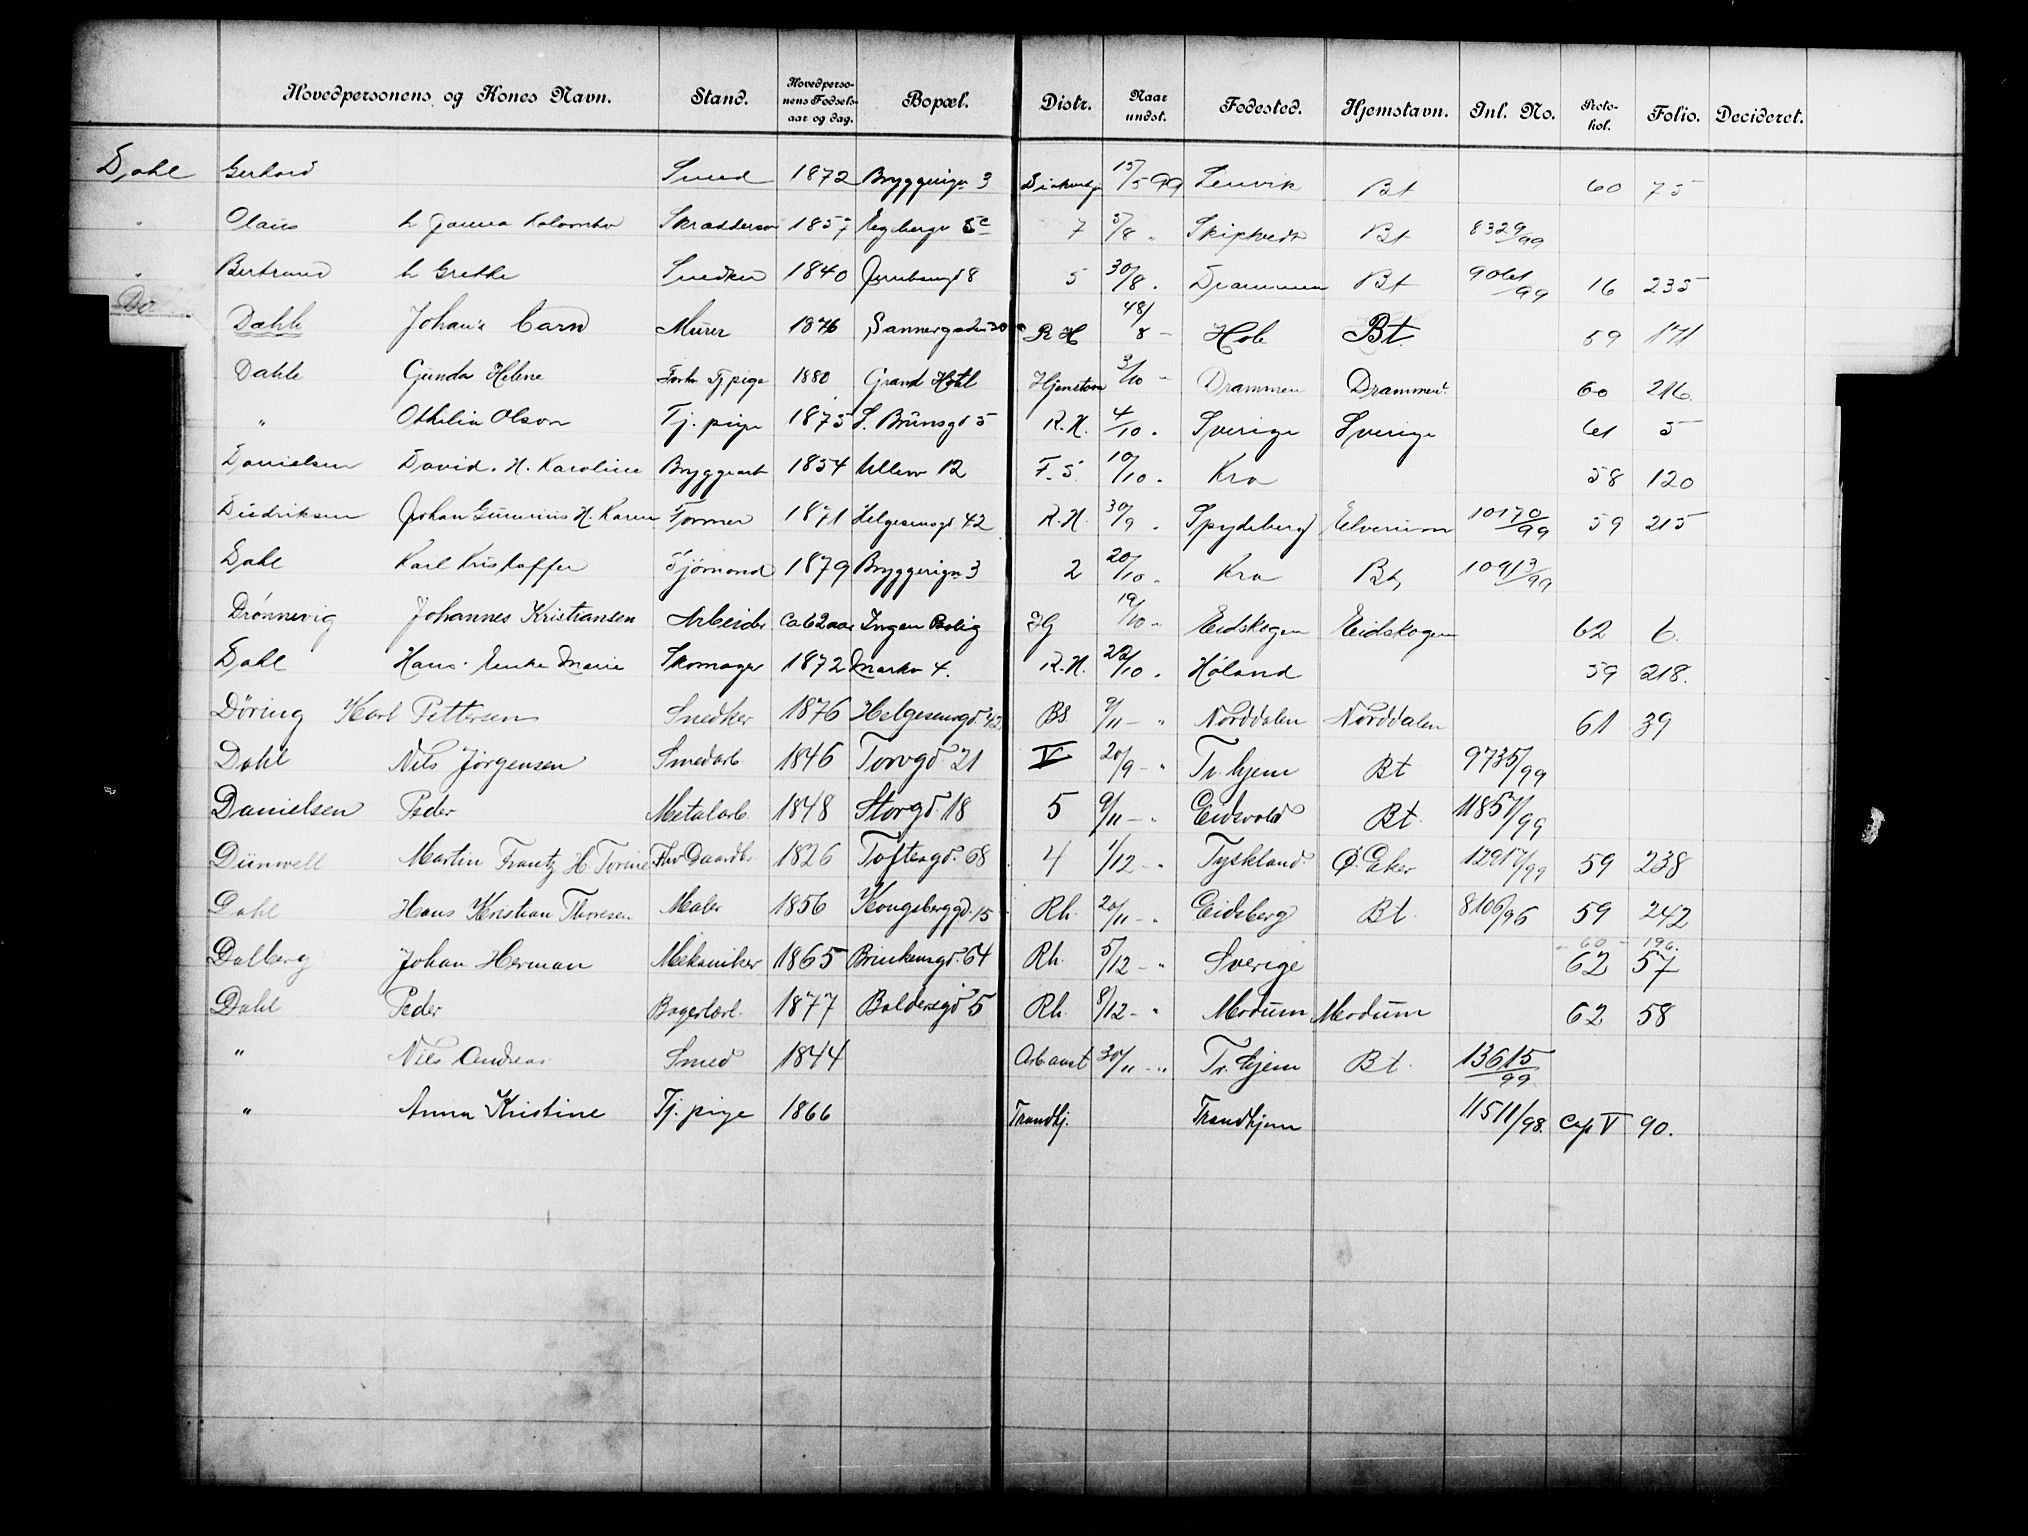 Hovedpersonens og Kones Navn. Stand. Hovedpersonens Fødselsaar og dag. Bopæl. Distr. Naar undst. Fødested. Hjemstavn. Inl. No. Protokol. Folio. Decideret.
Dahl Gerhard Smed 1872 Bryggerign 3 15/5 99 Lenvik Bt 60 75
" Olaus h Skrædder 1857 5c 7 5/8 " Skiptvedt Bt 8329/99
" Bertrand h Grethe Snedker 1840 8 5 30/8 " Drammen Bt 9061/99 16 235
Dahle Johan Murer 1876 Sannergaden 30 R H 8 - Bt. 59 171
Dahle Gunda Helene Tjpige 1880 Grand Hotel Hjemstavn 3/10 - Drammen Drammen 60 216.
" Othilia Olson Tj. pige 1875 S. Brunsgd 5 R. H. 4/10 " Sverige Sverige 61 5
Danielsen David. H. Karoline Bryggearb 1854 Ullev 12 F. S. 10/10 " Kra 58 120
Diedriksen Johan H. Karen Former 1871 Helgesensgd 42 R. H. 30/9 " Spydeberg Elverum 10170/99 59 215
Dahl Karl Kristoffer Sjømand 1879 Bryggerign 3 2 20/10 " Kra Bt, 10913/99
Drønnevig Johannes Kristiansen Arbeider Ca 62 aar Ingen Bolig 19/10 - Eidskogen Eidskogen 62 6.
Dahl Hans. Enke Marie Skomager 1872 Markv 4. R. H. 22/10 " Høland 59 218.
Døring Karl Pettersen Snedker 1876 Helgesensgd 42 Bs 9/11 - " Norddalen Norddalen 61 39
Dahl Nils Jørgensen Smedarb. 1846 Torvgd 21 V 20/9 - " Tr. hjem Bt 9735/99
Danielsen Peder Metalarb. 1848 Storgd. 18 5 9/11 - " Eidsvold Bt. 11857/99
Dünwell Martin Frantz H. Torine 1826 Toftesgd. 68 4 1/12 - " Tyskland Ø. Eker 12917/99 59 238
Dahl Hans Kristian Thoresen Maler 1856 Kongsberggd. 15 Rh. 20/11 - " Eidsberg Bt. 8106/96 59 242
60 - 196.
Dalberg Johan Herman Mekaniker 1865 Brinkensgd. 64 Rh. 5/12 - " Sverige 62 57
Dahl Peder Bagerlærl. 1877 Baldersgd 5 Rh. 8/12 - " Modum Modum 62 58
" Nils Andreas Smed 1844 Arb. anst 30/11 - " Tr. hjem Bt. 13615/99
" Anna Kristine Tj. pige 1866 Trondhj. Trondhjem 11511/98. Cop V 90.